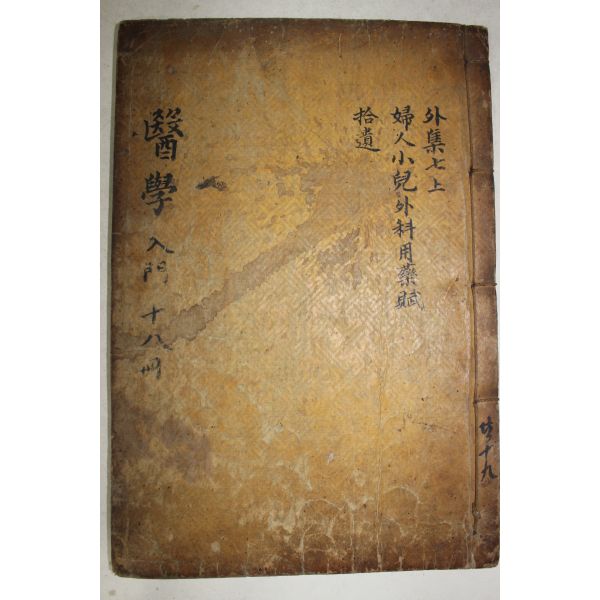 共十九
外集七上
婦人小兒外科用藥賦
拾遺
醫學入門 十八冊